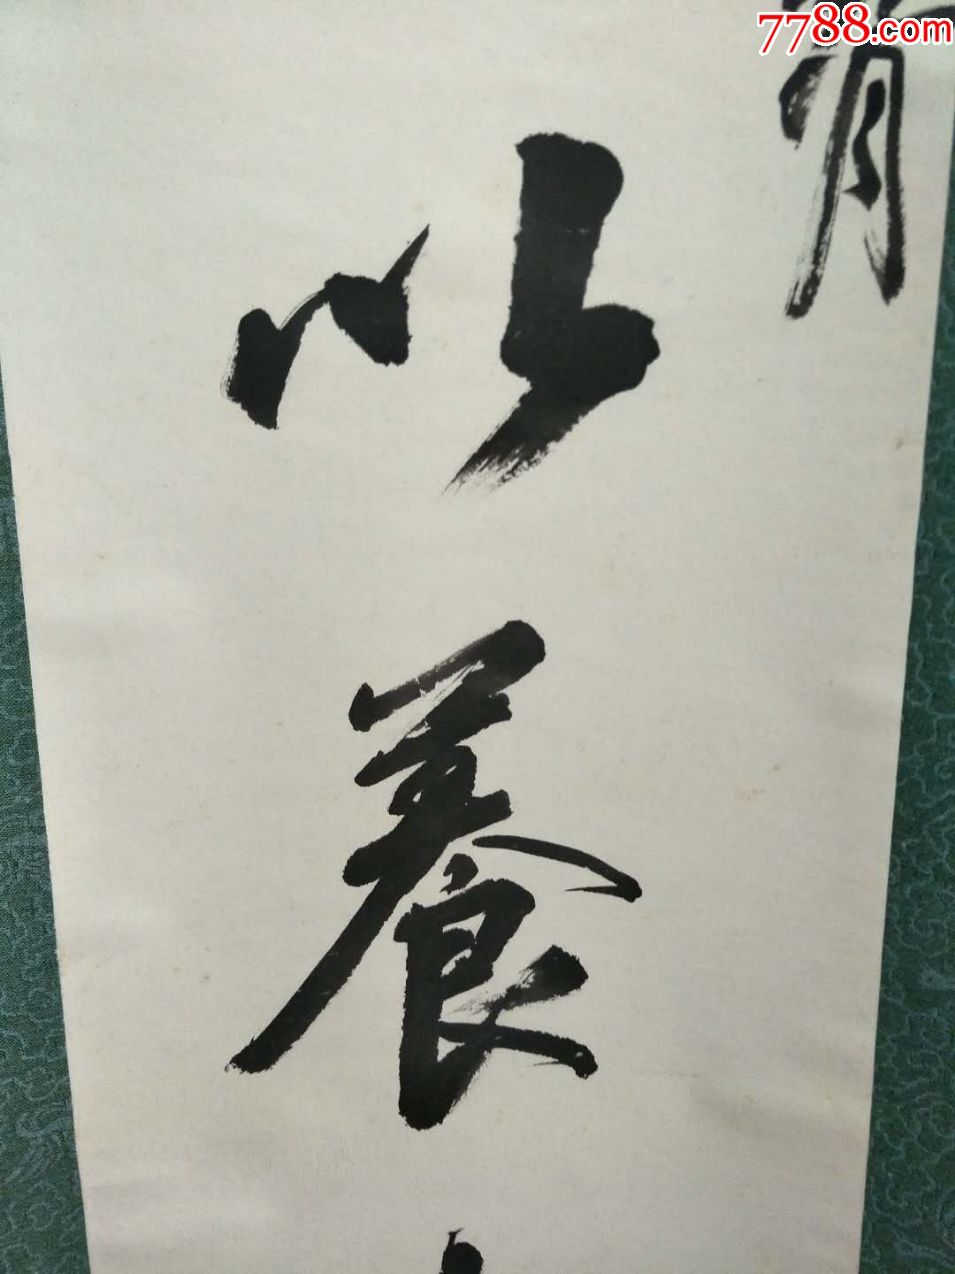 7788.com
以養